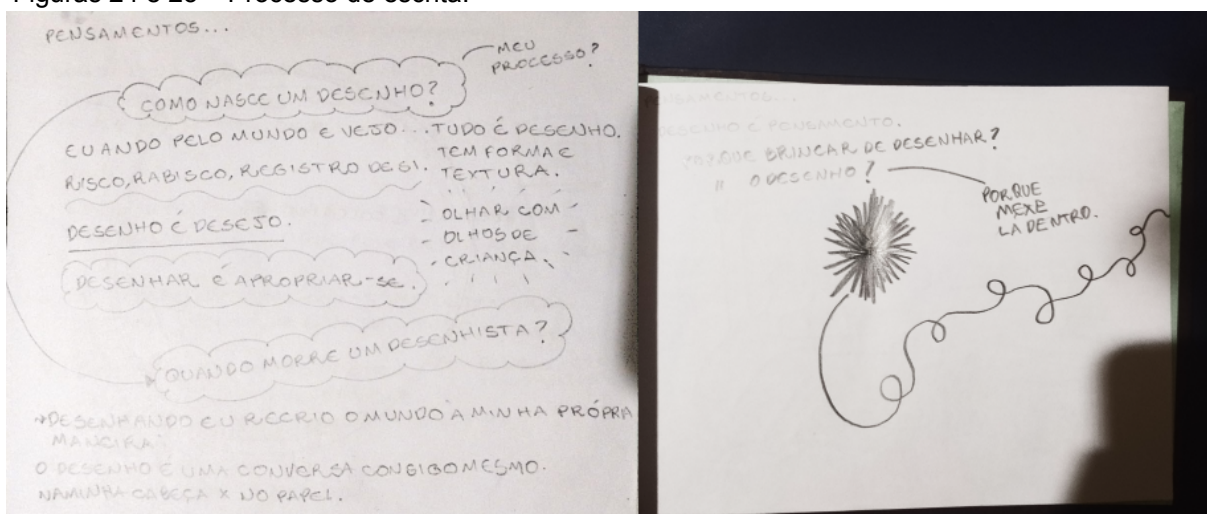 Figuras 24 e 25 – Processo de escrita.
PENSAMENTOS...
MEU
PROCESSO?
COMO NASCE UM DESENHO?
EU ANDO PELO MUNDO E VEJO... TUDO É DESENHO.
TEM FORMA E
RISCO, RABISCO, REGISTRO DE SI. TEXTURA.
DESENHO É DESEJO.
OLHAR COM
OLHOS DE
CRIANÇA.
DESENHAR É APROPRIAR-SE.
QUANDO MORRE UM DESENHISTA?
→DESENHANDO EU RECRIO O MUNDO À MINHA PRÓPRIA
MANEIRA.
O DESENHO É UMA CONVERSA CONSIGO MESMO.
NA MINHA CABEÇA X NO PAPEL.
PENSAMENTOS...
DESENHO É PENSAMENTO.
POR QUE BRINCAR DE DESENHAR?
" O DESENHO?
PORQUE
MEXE
LA DENTRO.